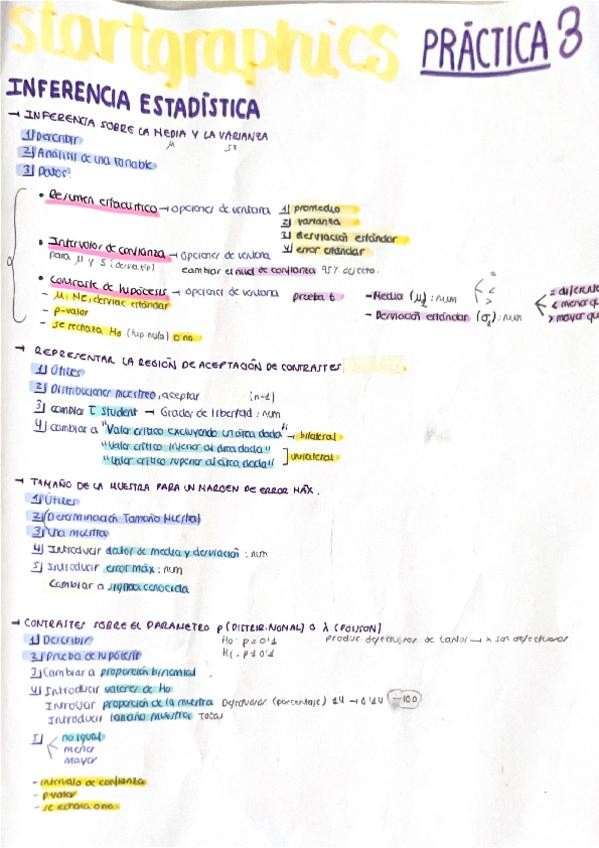 startgraphics PRÁCTICA 3
INFERENCIA ESTADÍSTICA
→ INFERENCIA SOBRE LA MEDIA Y LA VARIANZA
μ S²
1) Describir
2) Análisis de una variable
3) Datos
• Resumen estadístico → opciones de ventana 1) promedio
2) varianza
3) desviación estándar
4) error estándar
• Intervalos de confianza → opciones de ventana
para μ y S (desv.típ) cambiar el nivel de confianza 95% defecto.
• Contraste de hipótesis → opciones de ventana prueba t - Media (μ) : num
- Desviación estándar (σ) : num
= diferente
< menor que
> mayor que
- μ: NE; desviac estándar
- p-valor
- se rechaza Ho (hip nula) o no
→ REPRESENTAR LA REGIÓN DE ACEPTACIÓN DE CONTRASTES
1) Útiles
2) Distribuciones muestreo, aceptar (n-1)
3) cambiar T Student → Grados de libertad : num
4) cambiar a "Valor crítico excluyendo un área dada" → bilateral
"Valor crítico inferior al área dada"
"Valor crítico superior al área dada" ] unilateral
→ TAMAÑO DE LA MUESTRA PARA UN MARGEN DE ERROR MÁX.
1) Útiles
2) (Determinación Tamaño Muestra)
3) Una muestra
4) Introducir datos de media y desviación : num
5) Introducir error máx : num
Cambiar a sigma conocida
→ CONTRASTES SOBRE EL PARAMETRO p (DISTRIB. NOMAL) O λ (POISSON)
1) Describir Ho: p = 0'1 produc defectuosos de tantos → x son defectuosos
2) Prueba de hipótesis H1: p ≠ 0'1
3) Cambiar a proporción binomial
4) Introducir valores de Ho
Introducir proporción de la muestra Defectuosos (porcentaje) 14 → 0'14 (÷100)
Introducir tamaño muestra Total
5) no igual
menor
mayor
- intervalo de confianza
- p-valor
- se rechaza o no